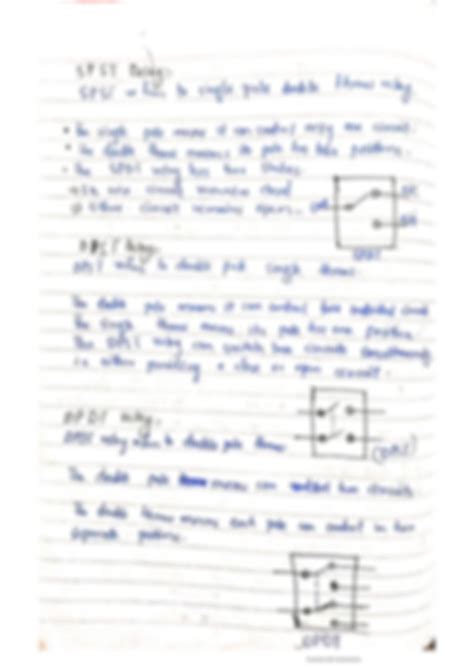 SPST Relay.
SPST refers to single pole double throw relay
The single pole means it can control only one circuit.
The double throw means its pole has two positions.
The SPDT relay has two states
one circuit remains closed
other circuit remains open.
DPST Relay.
DPST refers to double pole single throw.
The double pole means it can control two circuit
The single throw means its pole has one position
The DPST relay can switch two circuits simultaneously
in either providing a close or open circuit.
(DPST)
DPDT relay.
DPDT relay refers to double pole throw
The double pole means can control two circuits
The double throw means each pole can conduct in two
separate positions.
DPDT